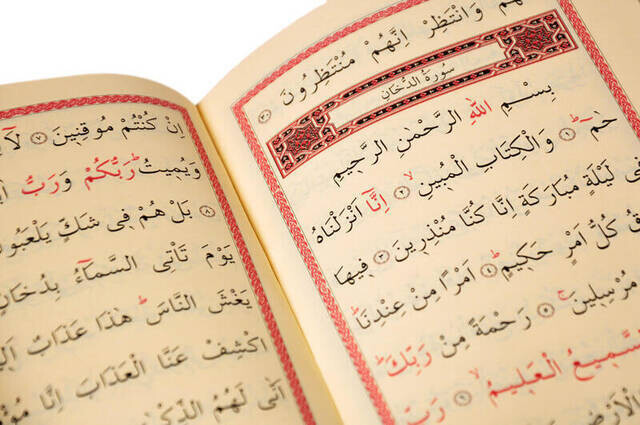 وَانْتَظِرْ اِنَّهُمْ مُنْتَظِرُونَ ﴿٣٠﴾
سُورَةُ الدُّخَانِ
بِسْمِ اللّٰهِ الرَّحْمٰنِ الرَّحِيمِ
حٰمٓ ﴿١﴾ وَالْكِتَابِ الْمُبِينِ ﴿٢﴾ اِنَّٓا اَنْزَلْنَاهُ
فِى لَيْلَةٍ مُبَارَكَةٍ اِنَّا كُنَّا مُنْذِرِينَ ﴿٣﴾ فِيهَا
كُلُّ اَمْرٍ حَكِيمٍ ﴿٤﴾ اَمْرًا مِنْ عِنْدِنَا
مُرْسِلِينَ ﴿٥﴾ رَحْمَةً مِنْ رَبِّكَ
السَّمِيعُ الْعَلِيمُ ﴿٦﴾ رَبِّ
اِنْ كُنْتُمْ مُوقِنِينَ ﴿٧﴾ لَٓا
وَيُمِيتُ رَبُّكُمْ وَرَبُّ
﴿٨﴾ بَلْ هُمْ فِى شَكٍّ يَلْعَبُو
يَوْمَ تَاْتِى السَّمَٓاءُ بِدُخَانٍ
يَغْشَى النَّاسَ هٰذَا عَذَابٌ
اِكْشِفْ عَنَّا الْعَذَابَ اِنَّا
اَنّٰى لَهُمُ